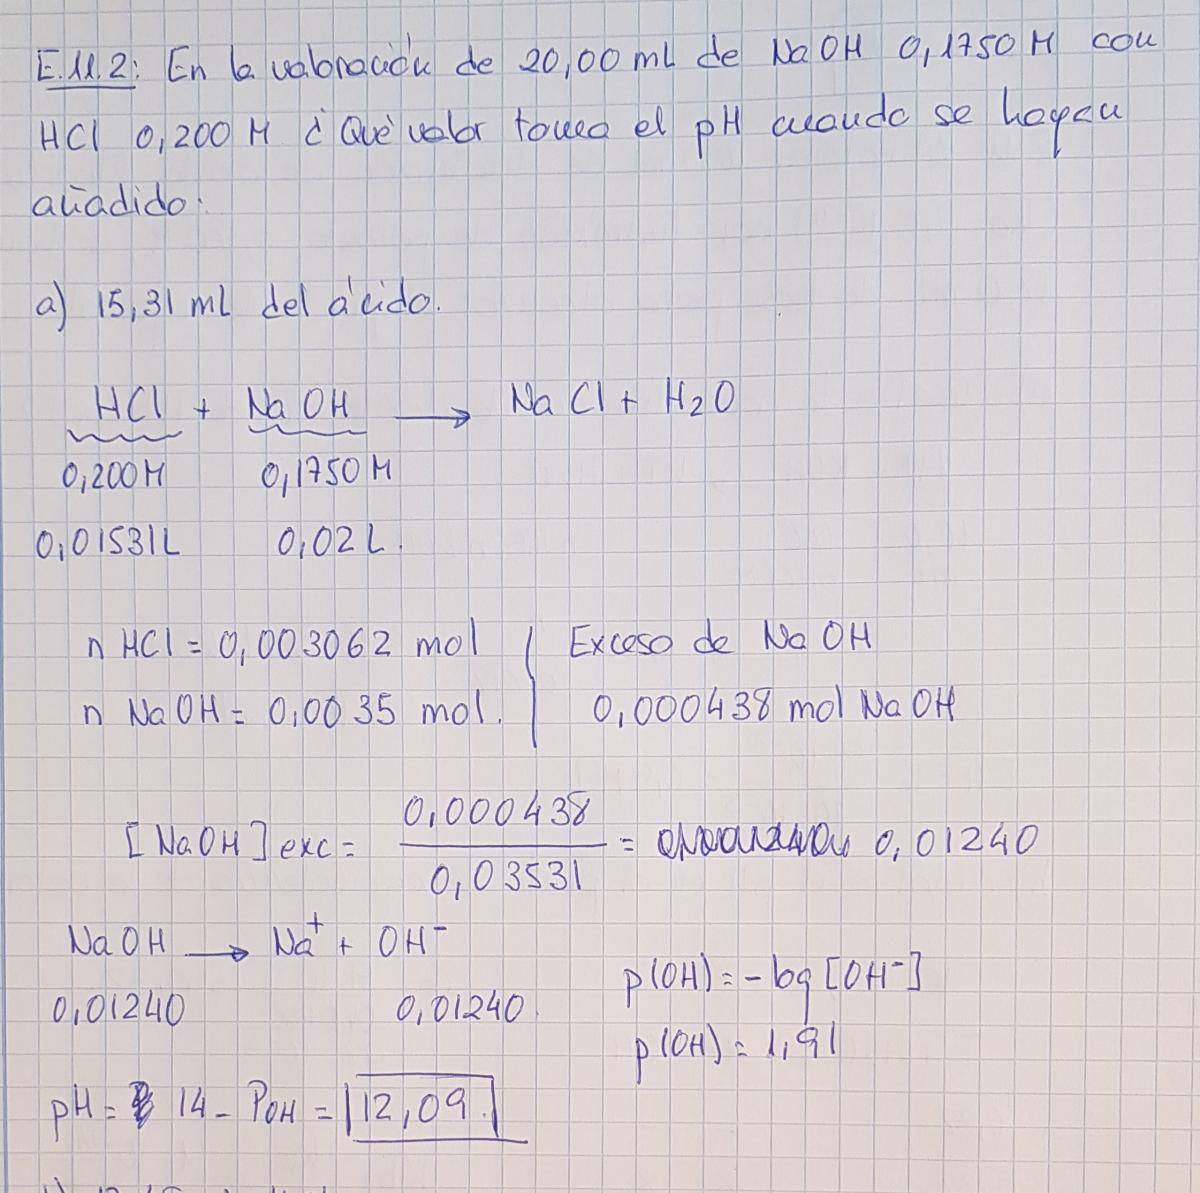 E.11.2: En la valoración de 20,00 ml de NaOH 0,1750 M con
HCl 0,200 M ¿Qué valor toma el pH cuando se hayan
añadido:
a) 15,31 ml del ácido.
HCl + NaOH → NaCl + H2O
0,200 M 0,1750 M
0,01531L 0,02 L.
n HCl = 0,003062 mol Exceso de NaOH
n NaOH = 0,0035 mol. 0,000438 mol NaOH
[NaOH] exc = 0,000438 / 0,03531 = 0,01240
NaOH → Na+ + OH-
0,01240 0,01240
p(OH) = -log [OH-]
p(OH) = 1,91
pH = 14 - POH = 12,09.